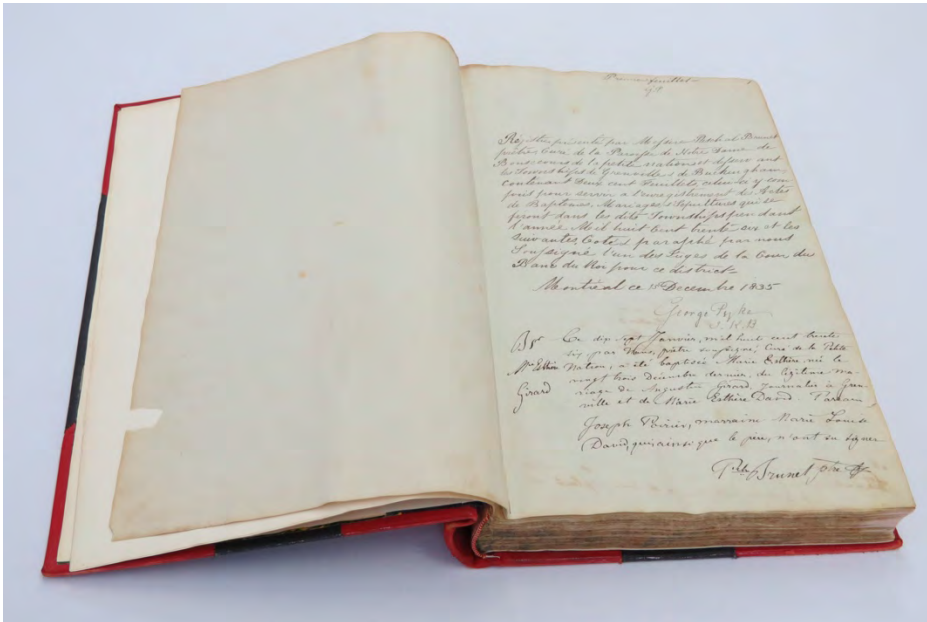 Premier feuillet
Régistre présenté par Messire Paschal Brunet
prêtre, Curé de la Paroisse de Notre Dame de
Bonsecours de la petite nation et desservant
les Townships de Grenville & de Buckingham,
contenant deux cent feuillets, celui-ci y com
pris pour servir a l'enregistrement des Actes
de Baptêmes, Mariages & Sepultures qui se
feront dans les dits Townships pendant
l'année Mil huit Cent trente six et les
suivantes, Coté & paraphé par nous
Soussigné l'un des Juges de la Cour du
Banc du Roi pour ce district
Montréal ce Decembre 1835
George Pyke
J. K. B.
Bpt Ce dix sept Janvier, mil huit cent trente
six, par Nous, prêtre soussigné, Curé de la Petite
Mie Esthère Nation, a été baptisée Marie Esthère, née le
vingt trois Décembre dernier, du légitime ma-
Girard riage de Augustin Girard, Journalier à Gren
ville et de Marie Esthère David. Parrain
Joseph Poirier, marraine Marie Louise
David, qui ainsi que le père, n'ont su signer
Pch Brunet Ptre